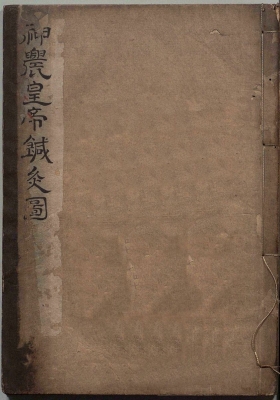 神農皇帝鍼灸圖